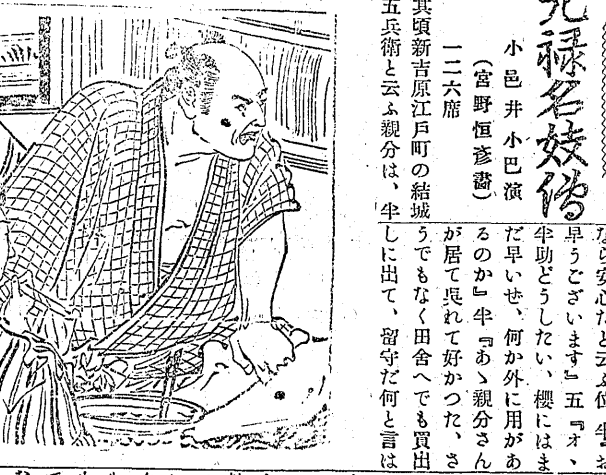 禄名妓傳
小邑井小巴演
(宮野恒彦畵)
一二六席
其頃新吉原江戸町の結城
五兵衛と云ふ親分は、半
なら安心だと云ふ位 半
早うございます』五『オヽ
半助どうしたい、櫻にはま
だ早いぜ、何か外に用があ
るのか』半『あゝ親分さん
が居て呉れて好かつた、さ
うでもなく田舎へでも買出
しに出て、留守だ何と言は